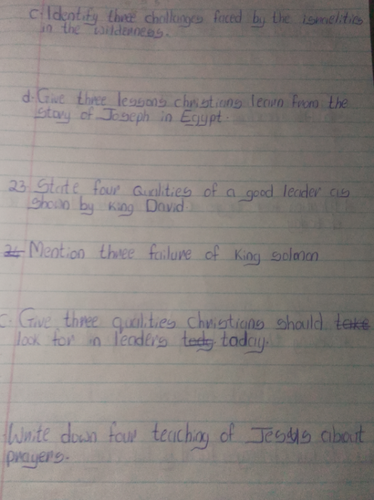 c. Identify three challenges faced by the Isrealities
in the wilderness.
d. Give three lessons christians learn from the
story of Joseph in Egypt.
23 State four qualities of a good leader as
shown by King David
24 Mention three failure of King solmon
C. Give three qualities Christians should take
look for in leaders tody today.
Write down four teaching of Jesus about
prayers.